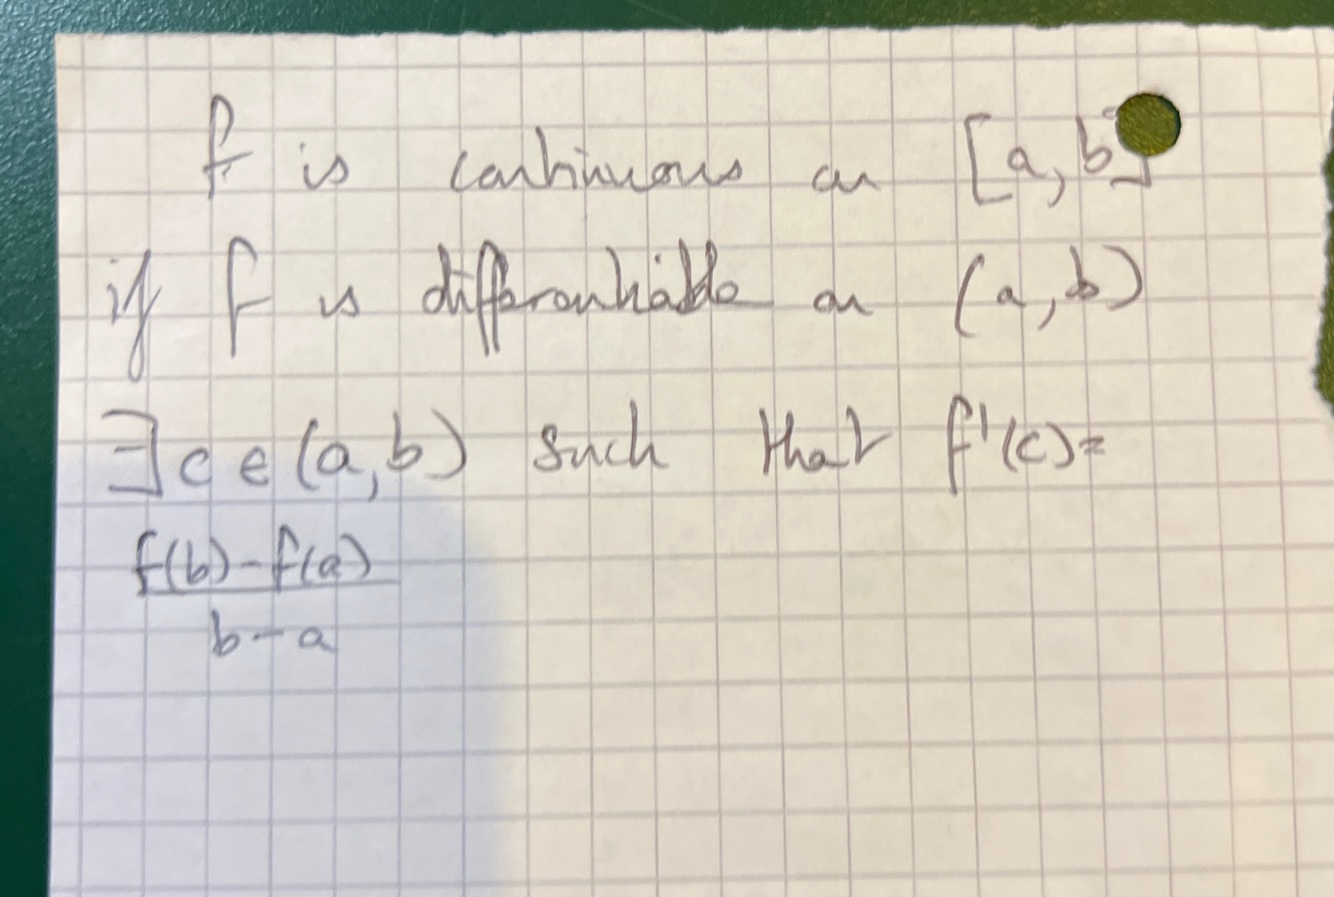 f is continuous on [a, b]
if f is differentiable on (a, b)
∃ c ∈ (a, b) such that f'(c) =
f(b) - f(a)
b - a